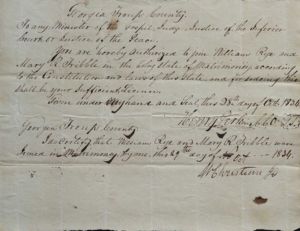 Georgia Troup County
To any Minister of the Gospel, Judge, Justice of the Inferior
Court or Justice of the Peace
You are hereby authorized to join William Rye and
Mary R. Tribble in the Holy State of Matrimony according
to the Constitution and Laws of this State and for so doing this
shall be your Sufficient License
Given under my hand and Seal, this 28th day of Oct. 1834
Georgia Troup County
I do Certify that William Rye and Mary R. Tribble were
Joined in Matrimony by me, this 29th day of Oct 1834.
Christian